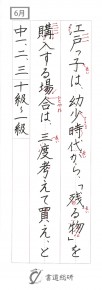 6月
江戸っ子は、幼少時代から、「残る物」を
購入する場合は、三度考えて買え、と
中一、二、三 十級〜一級
書道総研